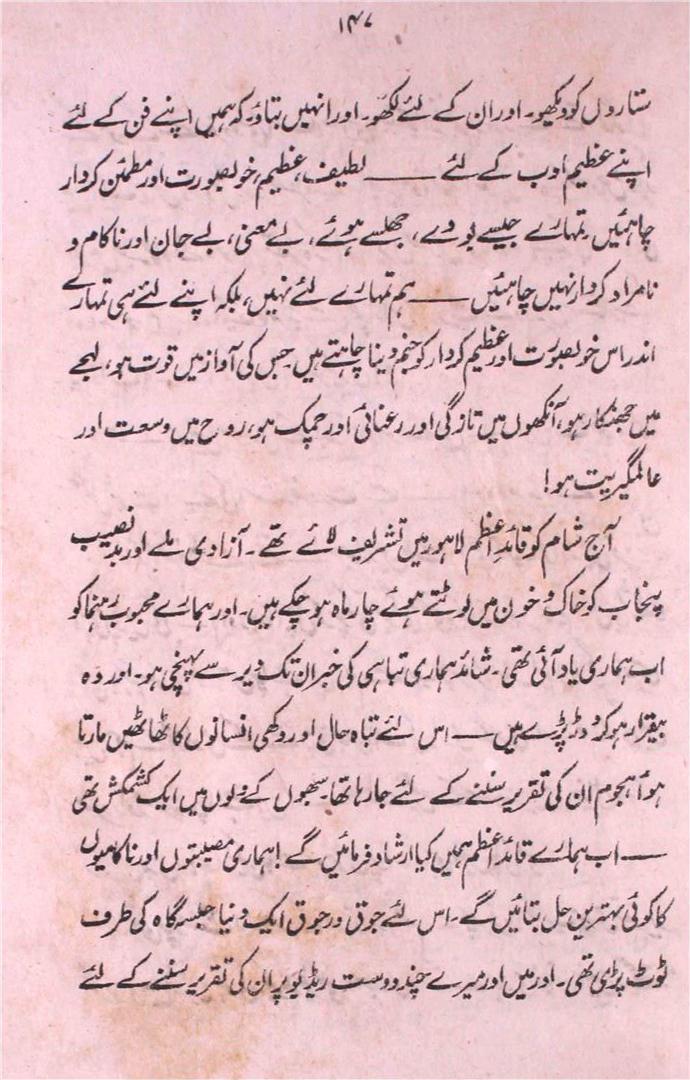 ۱۴۷
ستاروں کو دیکھو۔ اور ان کے لئے لکھو۔ اور انہیں بتاؤ کہ ہمیں اپنے فن کے لئے
اپنے عظیم ادب کے لئے ——— لطیف، عظیم، خوبصورت اور مطمئن کردار
چاہئیں تمہارے جیسے بودے، جھلسے ہوئے، بے معنی، بے جان اور ناکام و
نامراد کردار نہیں چاہئیں —— ہم تمہارے لئے نہیں، بلکہ اپنے لئے ہی تمہارے
اندر اس خوبصورت اور عظیم کردار کو جنم دینا چاہتے ہیں جس کی آواز میں قوت ہو، لہجے
میں جھنکار ہو، آنکھوں میں تازگی اور رعنائی اور چمک ہو، روح میں وسعت اور
عالمگیریت ہو!
آج شام کو قائدِ اعظم لاہور میں تشریف لائے تھے۔ آزادی ملے اور بدنصیب
پنجاب کو خاک و خون میں لوٹتے ہوئے چار ماہ ہو چکے ہیں۔ اور ہمارے محبوب رہنما کو
اب ہماری یاد آئی تھی۔ شائد ہماری تباہی کی خبر ان تک دیر سے پہنچی ہو۔ اور وہ
بیقرار ہو کر دوڑ پڑے ہیں —— اس لئے تباہ حال اور دکھی انسانوں کا ٹھاٹھیں مارتا
ہوا ہجوم ان کی تقریر سننے کے لئے جا رہا تھا۔ سبھوں کے دلوں میں ایک کشمکش تھی
—— اب ہمارے قائدِ اعظم ہمیں کیا ارشاد فرمائیں گے! ہماری مصیبتوں اور ناکامیوں
کا کوئی بہترین حل بتائیں گے۔ اس لئے جوق در جوق ایک دنیا جلسہ گاہ کی طرف
ٹوٹ پڑی تھی۔ اور میں اور میرے چند دوست ریڈیو پر ان کی تقریر سننے کے لئے